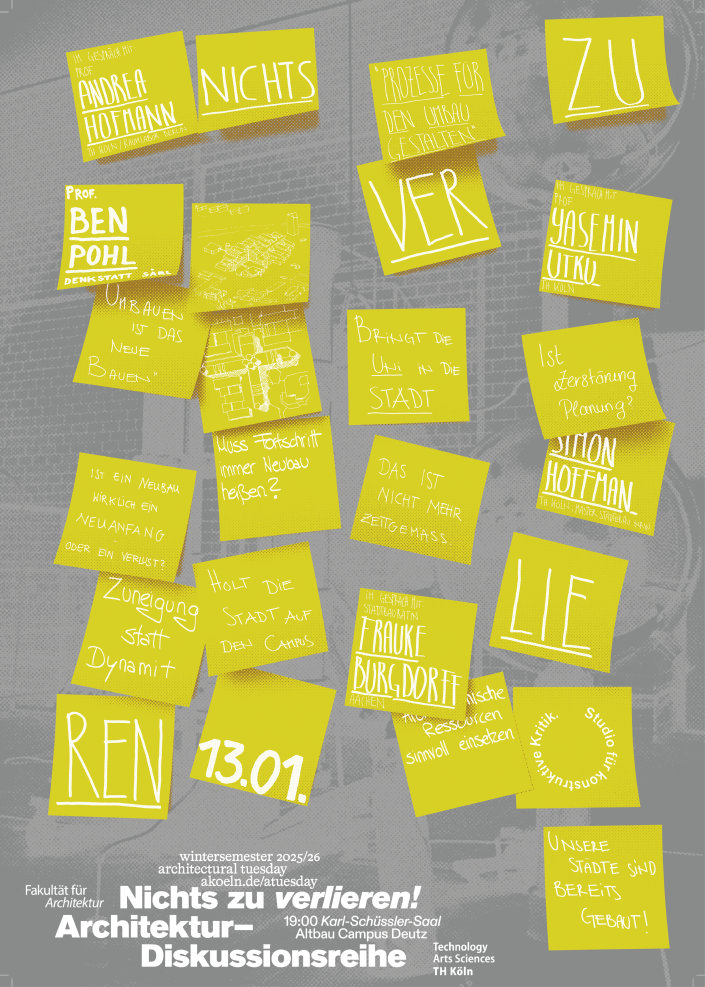 IM GESPRÄCH MIT
PROF.
ANDREA
HOFMANN
TH KÖLN / RAUMLABOR BERLIN
NICHTS
"PROZESSE FÜR
DEN UMBAU
GESTALTEN"
ZU
PROF.
BEN
POHL
DENKSTATT SÀRL
VER
IM GESPRÄCH MIT
PROF.
YASEMIN
UTKU
TH KÖLN
UMBAUEN
IST DAS
NEUE
BAUEN"
BRINGT DIE
UNI IN DIE
STADT
Ist
Zerstörung
Planung?
SIMON
HOFFMAN
TH KÖLN, MASTER STÄDTEBAU NRW
Muss Fortschritt
immer Neubau
heißen?
DAS IST
NICHT MEHR
ZEITGEMÄSS.
IST EIN NEUBAU
WIRKLICH EIN
NEUANFANG
ODER EIN VERLUST?
Zuneigung
statt
Dynamit
HOLT DIE
STADT AUF
DEN CAMPUS
LIE
IM GESPRÄCH MIT
STADTBAURÄTIN
FRAUKE
BURGDORFF
AACHEN
Ressourcen
sinnvoll einsetzen
REN
13.01.
Studio für konstruktive Kritik.
UNSERE
STÄDTE SIND
BEREITS
GEBAUT!
wintersemester 2025/26
architectural tuesday
akoeln.de/atuesday
Fakultät für
Architektur
Nichts zu verlieren!
Architektur–
Diskussionsreihe
19:00 Karl-Schüssler-Saal
Altbau Campus Deutz
Technology
Arts Sciences
TH Köln